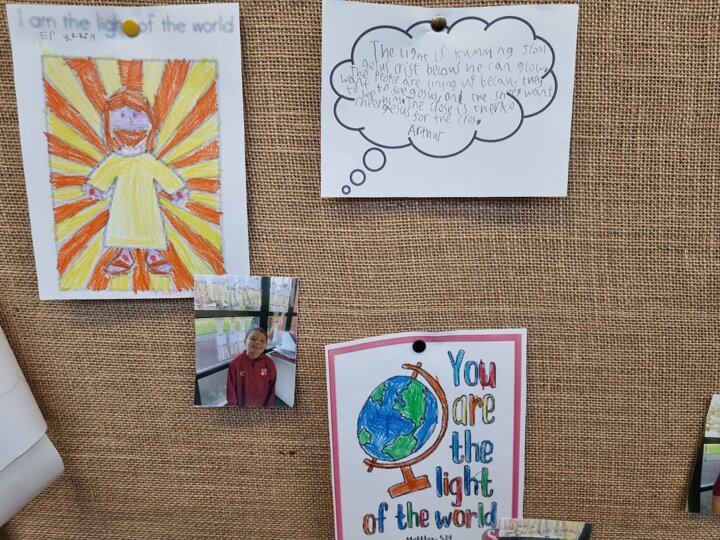 I am the light of the world
The light is kumming from
gesus crist becaus he can glow.
The people are lining up becaus they
want to see gosus and the sheep want
to see him. The clos is there to
cheer
gesus for the clos.
Arthur
You
are
the
light
of the world
Matthew 5:14